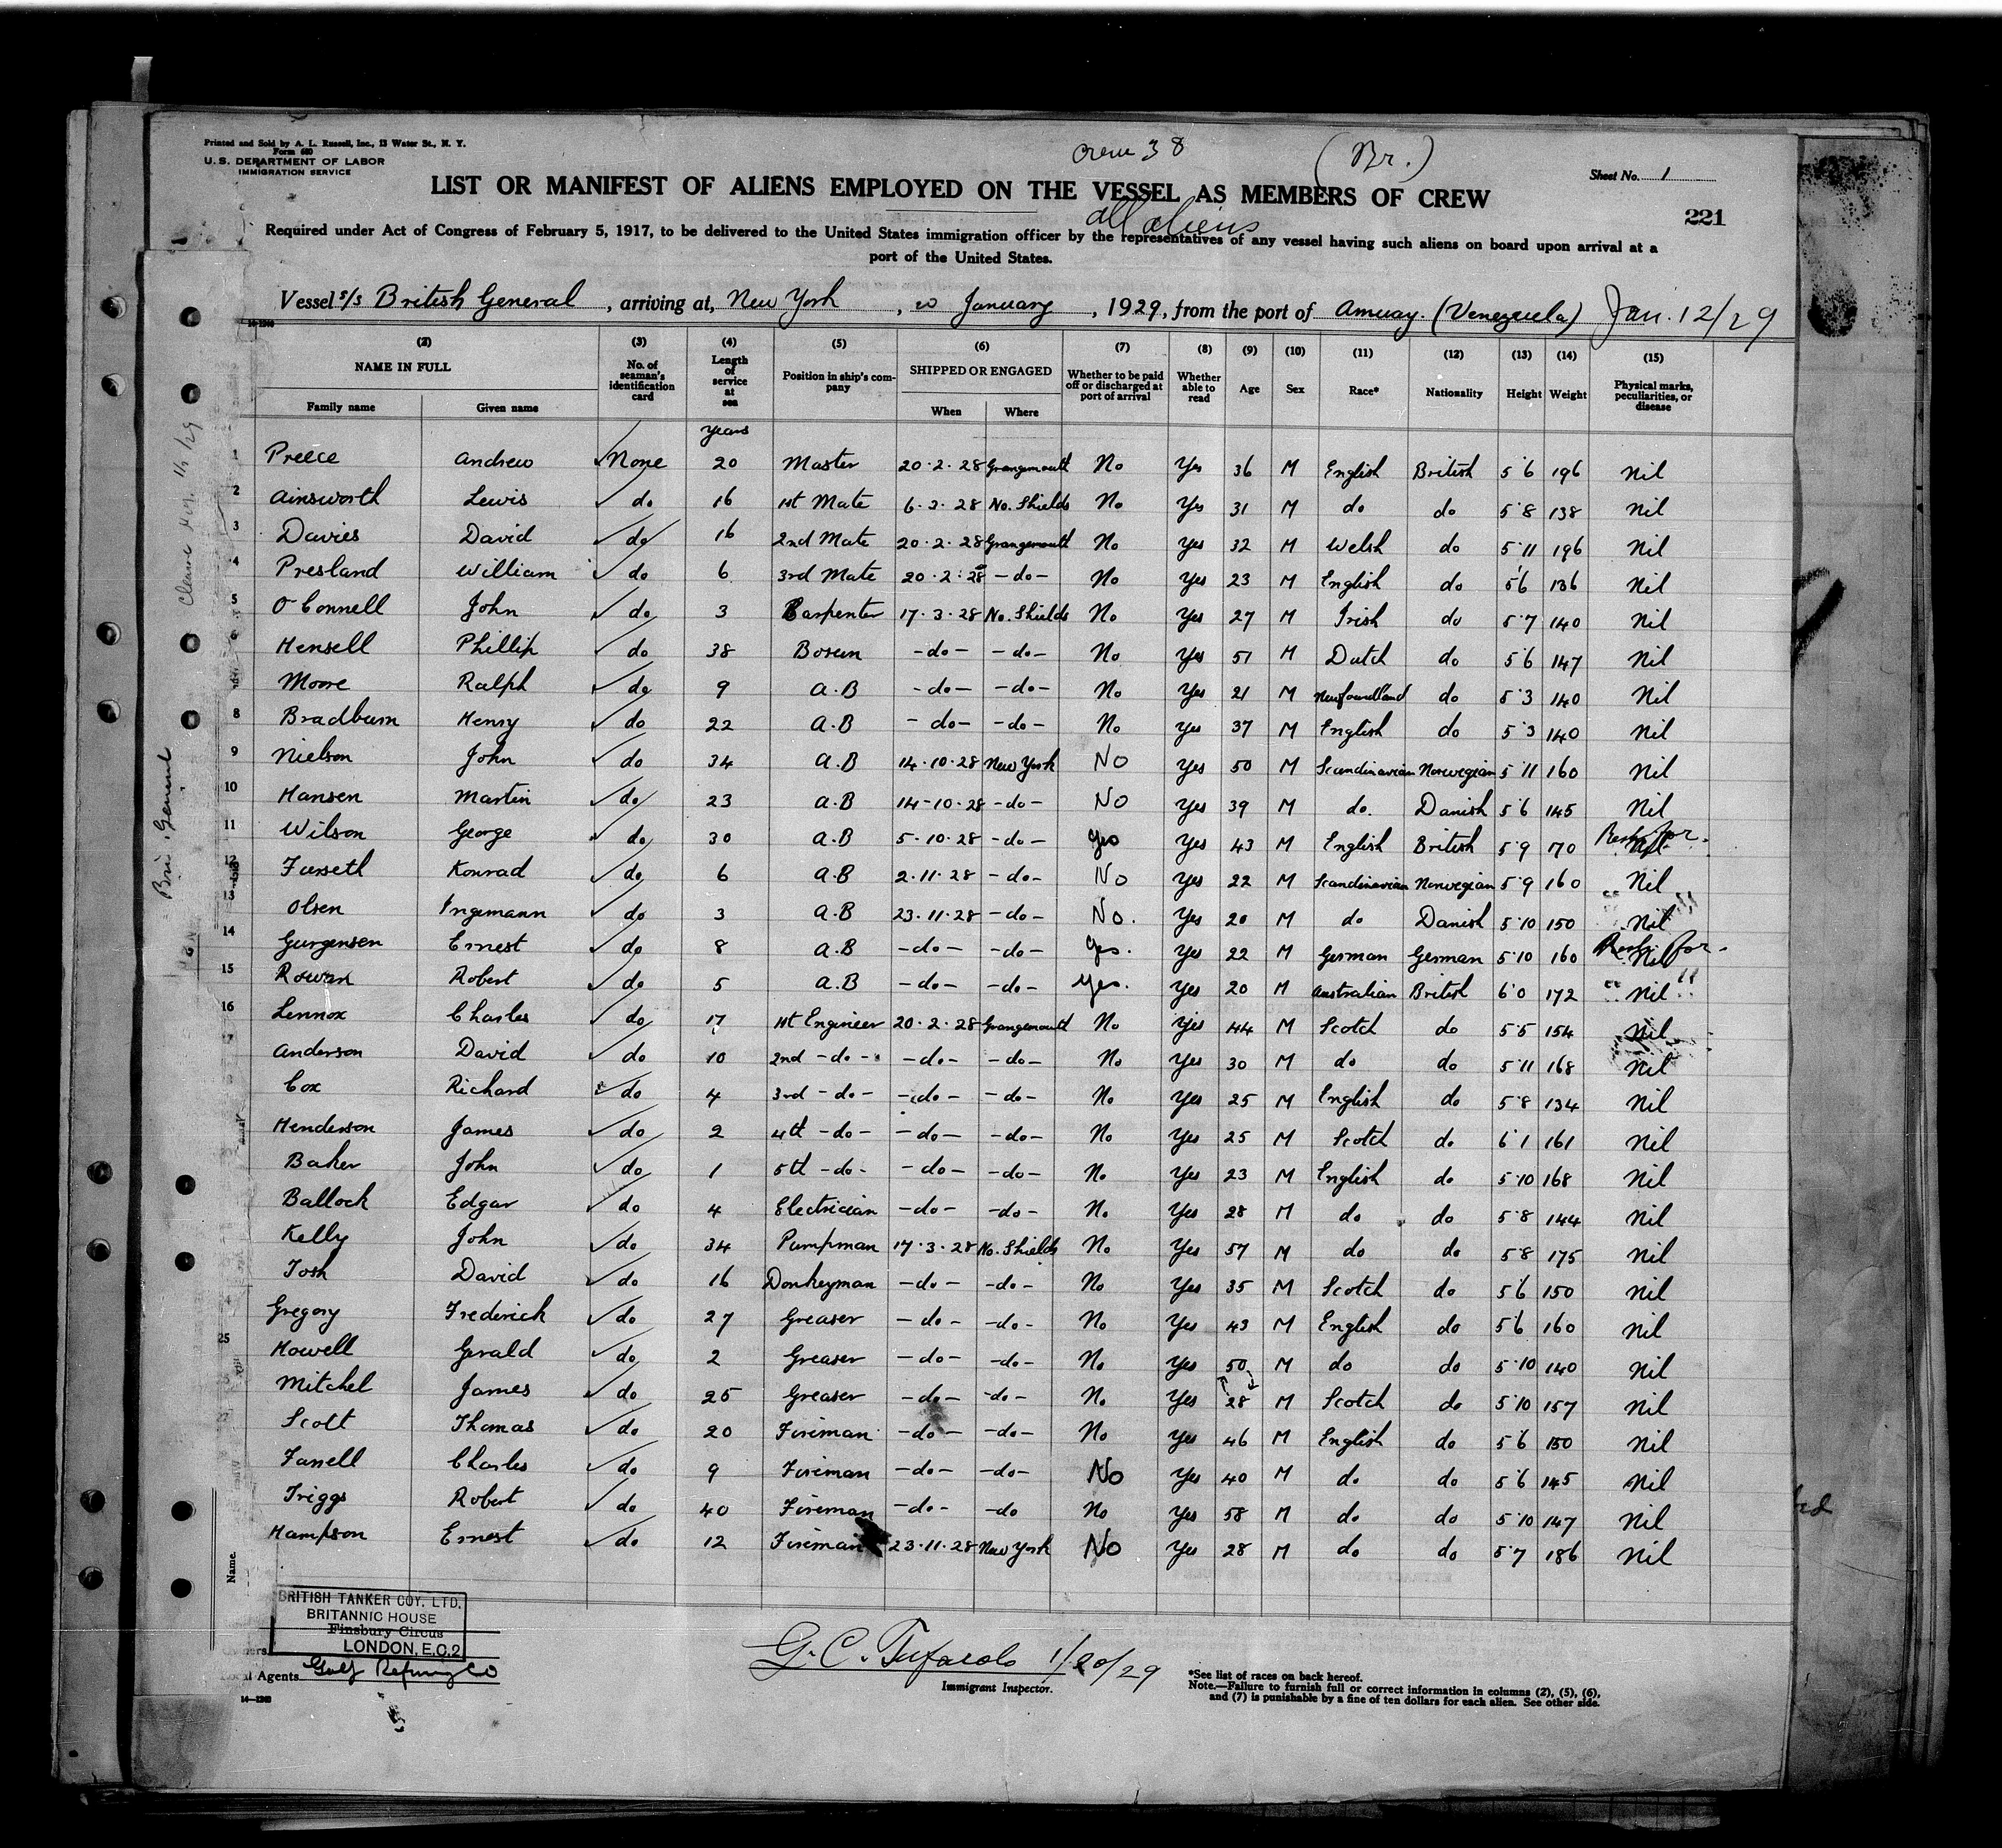 Printed and Sold by A. L. Russell, Inc., 13 Water St., N. Y.
Form 680
U.S. DEPARTMENT OF LABOR
IMMIGRATION SERVICE
Crew 38
(Br.)
Sheet No. 1
LIST OR MANIFEST OF ALIENS EMPLOYED ON THE VESSEL AS MEMBERS OF CREW
221
all aliens
Required under Act of Congress of February 5, 1917, to be delivered to the United States immigration officer by the representatives of any vessel having such aliens on board upon arrival at a
port of the United States.
Vessel s/s British General, arriving at, New York, January, 1929, from the port of Amuay. (Venezuela) Jan. 12/29
(2) (3) (4) (5) (6) (7) (8) (9) (10) (11) (12) (13) (14) (15)
NAME IN FULL No. of seaman's identification card Length of service at sea Position in ship's company SHIPPED OR ENGAGED Whether to be paid off or discharged at port of arrival Whether able to read Age Sex Race* Nationality Height Weight Physical marks, peculiarities, or disease
Family name Given name When Where
years
1 Preece Andrew None 20 Master 20.2.28 Grangemouth No Yes 36 M English British 5'6 196 Nil
2 Ainsworth Lewis do 16 1st Mate 6.3.28 No. Shields No Yes 31 M do do 5'8 138 Nil
3 Davies David do 16 2nd Mate 20.2.28 Grangemouth No Yes 32 M Welsh do 5'11 196 Nil
4 Presland William do 6 3rd Mate 20.2.28 -do- No Yes 23 M English do 5'6 136 Nil
5 O'Connell John do 3 Carpenter 17.3.28 No. Shields No Yes 27 M Irish do 5'7 140 Nil
6 Hensell Phillip do 38 Bosun -do- -do- No Yes 51 M Dutch do 5'6 147 Nil
Moore Ralph do 9 A.B -do- -do- No Yes 21 M Newfoundland do 5'3 140 Nil
8 Bradburn Henry do 22 A.B -do- -do- No Yes 37 M English do 5'3 140 Nil
9 Nielson John do 34 A.B 14.10.28 New York No Yes 50 M Scandinavian Norwegian 5'11 160 Nil
10 Hansen Martin do 23 A.B 14-10-28 -do- No Yes 39 M do. Danish 5'6 145 Nil
11 Wilson George do 30 A.B 5.10.28 -do- Yes Yes 43 M English British 5'9 170
12 Furseth Konrad do 6 A.B 2.11.28 -do- No Yes 22 M Scandinavian Norwegian 5'9 160 Nil
13 Olsen Ingemann do 3 A.B 23.11.28 -do- No. Yes 20 M do Danish 5'10 150 Nil
14 Gurgensen Ernest do 8 A.B -do- -do- Yes. Yes 22 M German German 5'10 160 Nil
15 Rowan Robert do 5 A.B -do- -do- Yes. Yes 20 M Australian British 6'0 172 Nil
16 Lennox Charles do 17 1st Engineer 20.2.28 Grangemouth No Yes 44 M Scotch do 5'5 154 Nil
Anderson David do 10 2nd -do- -do- -do- No Yes 30 M do do 5'11 168 Nil
Cox Richard do 4 3rd -do- -do- -do- No Yes 25 M English do 5'8 134 Nil
Henderson James do 2 4th -do- -do- -do- No Yes 25 M Scotch do 6'1 161 Nil
Baker John do 1 5th -do- -do- -do- No Yes 23 M English do 5'10 168 Nil
Ballock Edgar do 4 Electrician -do- -do- No Yes 28 M do do 5'8 144 Nil
Kelly John do 34 Pumpman 17.3.28 No. Shields No Yes 57 M do do 5'8 175 Nil
Tosh David do 16 Donkeyman -do- -do- No Yes 35 M Scotch do 5'6 150 Nil
Gregory Frederick do 27 Greaser -do- -do- No Yes 43 M English do 5'6 160 Nil
25 Howell Gerald do 2 Greaser -do- -do- No Yes 50 M do do 5'10 140 Nil
Mitchel James do 25 Greaser -do- -do- No Yes 28 M Scotch do 5'10 157 Nil
27 Scott Thomas do 20 Fireman -do- -do- No Yes 46 M English do 5'6 150 Nil
Farrell Charles do 9 Fireman -do- -do- No Yes 40 M do do 5'6 145 Nil
Triggs Robert do 40 Fireman -do- -do No Yes 58 M do do 5'10 147 Nil
Hampson Ernest do 12 Fireman 23.11.28 New York No Yes 28 M do do 5'7 186 Nil
Bri. General
Name.
BRITISH TANKER COY. LTD.
BRITANNIC HOUSE
Finsbury Circus
LONDON, E.C.2
Agents Gulf Refining Co
14-1240
1/20/29
Immigrant Inspector.
*See list of races on back hereof.
Note.—Failure to furnish full or correct information in columns (2), (5), (6),
and (7) is punishable by a fine of ten dollars for each alien. See other side.